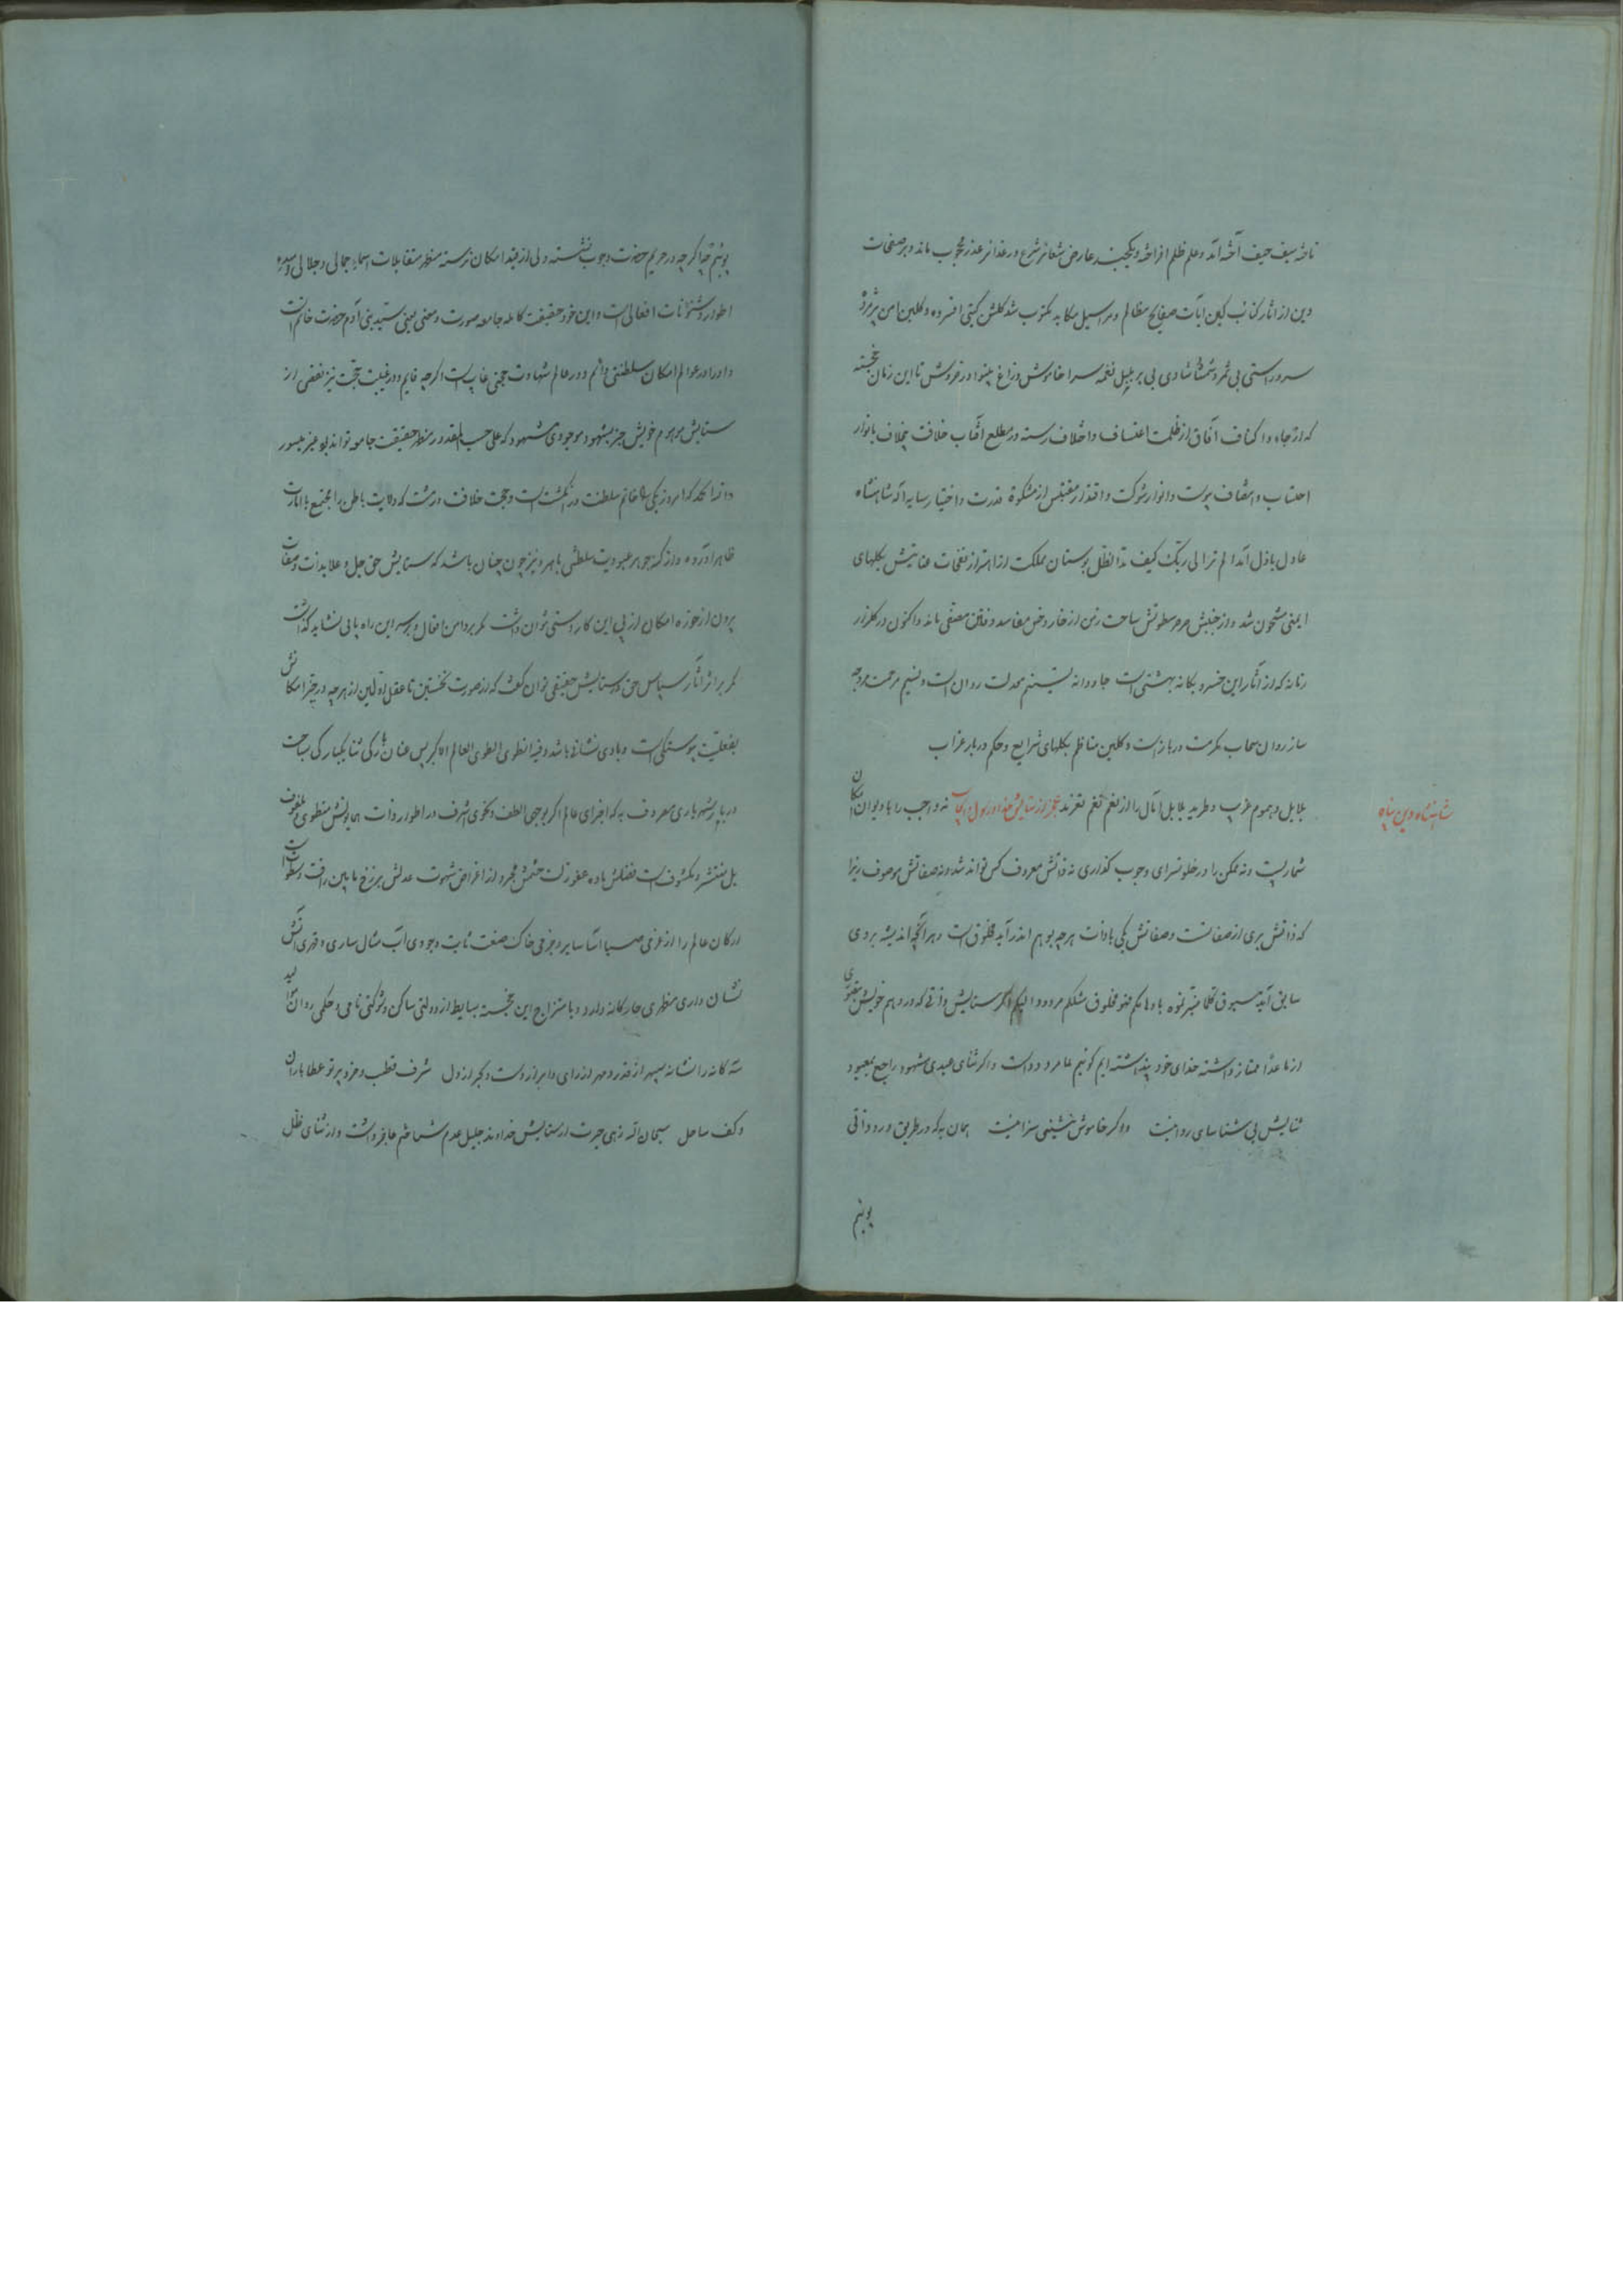 تاخته سیف حیف آخته آمد و علم ظلم افراخته و یکچند عارض شعائر شرع در غدائر عذر محجوب ماند و بر صفحات
دین از آثار کتائب کین آیات صفایح مظالم و مراسیل مکاید مکتوب شد گلشن گیتی افسرده و گلبن امن پژمرد
سرو راستی بی ثمر و شمشاد شادی بی بر بلبل نغمه سرا خاموش و زاغ بینوا در خروش تا این زمان خجسته
که ارجاء و اکناف آفاق از ظلمت اعتساف و اختلاف رسته در مطلع آفتاب خلافت بیخلاف بانوار
احتساب و انتصاف پیوست و انوار شوکت و اقتدار مقتبس از مشکوة قدرت و اختیار سایه اله شاهنشاه
عادل باذل آمد الم تر الی ربک کیف مد الظل بوستان مملکت از اهتزاز نفحات عنایتش بگلهای
ایمنی مشحون شد و از جنبش صرصر سطوتش ساحت زمن از خار و خس مفاسد و فتن مصفی ماند و اکنون در گلزار
زمانه که از آثار این خسرو یگانه بهشتی است جاودانه تسنیم معدلت روان است و نسیم مرحمت مروحه
ساز روان سحاب مکرمت دربار است و گلبن مناظم بگلهای شرایع و حکم دربار عزاب
بلابل و هموم غریب و طرید بلابل آمال را از نعم نغم تغرید عجز از ستایش خدا و رسول و نه واجب را با دیوان امکان
شاهنشاه دین پناه
شماریست و نه ممکن را در خلوتسرای وجوب گذاری نه ذاتش معروف کس تواند شد و نه صفاتش موصوف زیرا
که ذاتش بری از صفاتست و صفاتش یکی با ذات هرچه بوهم اندر آید مخلوق است و هر آنچه اندیشه بر وی
سابق آید مسبوق کلما میزتموه باوهامکم فهو مخلوق مثلکم مردود الیکم اگر ستایش ذاتی که در وهم خویش
از ما عدا ممتاز داشته خدای خود پنداشته ایم گوئیم بما مردود است و اگر ثنای عبدی مشهود راجع بمعبود
ثنایش بی شناسای روا نیست و گر خاموش بنشینی سزا نیست همان به که در طریق درود ذاتی
پوئیم
پوئیم که اگرچه در حریم حضرت وجوب ننشسته ولی از قید امکان نرسته مظهر متقابلات اسماء جمالی و جلالی و مبدء
اطوار و شئونات افعالی است و این خود حقیقت کامله جامعه صورت و معنی یعنی سید بنی آدم حضرت خاتم است
و او را در عوالم امکان سلطنتی دائم و در عالم شهادت حجتی غایب است اگرچه قایم و در غیبت حجت نیز نفسی از
ستایش موهوم خویش جز بمشهود موجودی مشهود که علی حسب المقدور مظهر حقیقت جامعه تواند بود غیر میسور
و له الحمد که امروز یکی را خاتم سلطنت در انگشت است و حجت خلافت در مشت که ولایت باطن را مجتمع با امارت
ظاهر آورده و از کنه جوهر عبودیت سلطنتی باهر و نیز چون چنان باشد که ستایش حق جل و علا بذات و صفات
برون از حوزه امکان از پی این کار دستی توان داشت مگر بر دامن افعال و بر سر این راه پایی نشاید گذاشت
مگر بر اثر آثار سپاس حق و ستایش حقیقی توان گفت که از صورت نخستین تا عقل اولین از هرچه در حیز امکانش
بفعلیت پیوستگی است و بادی نشانه باشد و فیه انطوی العالم الاکبر پس عنان بارگی ثنا یکبارگی بساحت
دربار شهریاری معروف به که اجزای عالم اکبر بوجهی الطف و نحوی اشرف در اطوار ذات همایونش منطوی و ملفوف
بل منتشر و مکشوف است فضلش ماده عقوزلت خشمش مجرد از اغراض شهوت عدلش برزخ مابین رافت و سطوت است
ارکان عالم را از عزمی صبا آسا سایر و جزمی خاک صفت ثابت و جودی آب مثال ساری و قهری آتش
نشان داری مظهری چارگانه دارد و با متزاج این خجسته بسایط از دولتی ساکن و شوکتی نامی و حکمی روان موالید
سه گانه را نشانه سپهر از قدر و مهر از رای و ابر از دست و بحر از دل شرف قطب و مزد پرتو عطا باران
و کف ساحل سبحان الله زهی حیرت از ستایش خداوند جلیل عدم شناختم عاجز داشت و از ثنای ظل